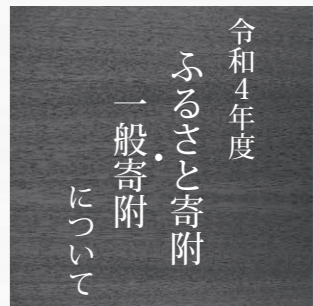 令和4年度
ふるさと寄附
・一般寄附
について